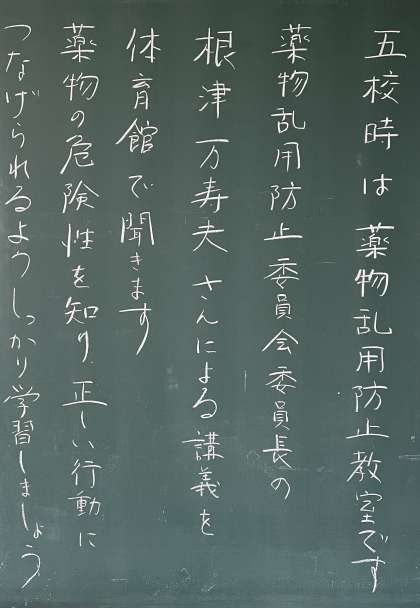 五校時は薬物乱用防止教室です
薬物乱用防止委員会委員長の
根津万寿夫さんによる講義を
体育館で聞きます
薬物の危険性を知り、正しい行動に
つなげられるようしっかり学習しましょう